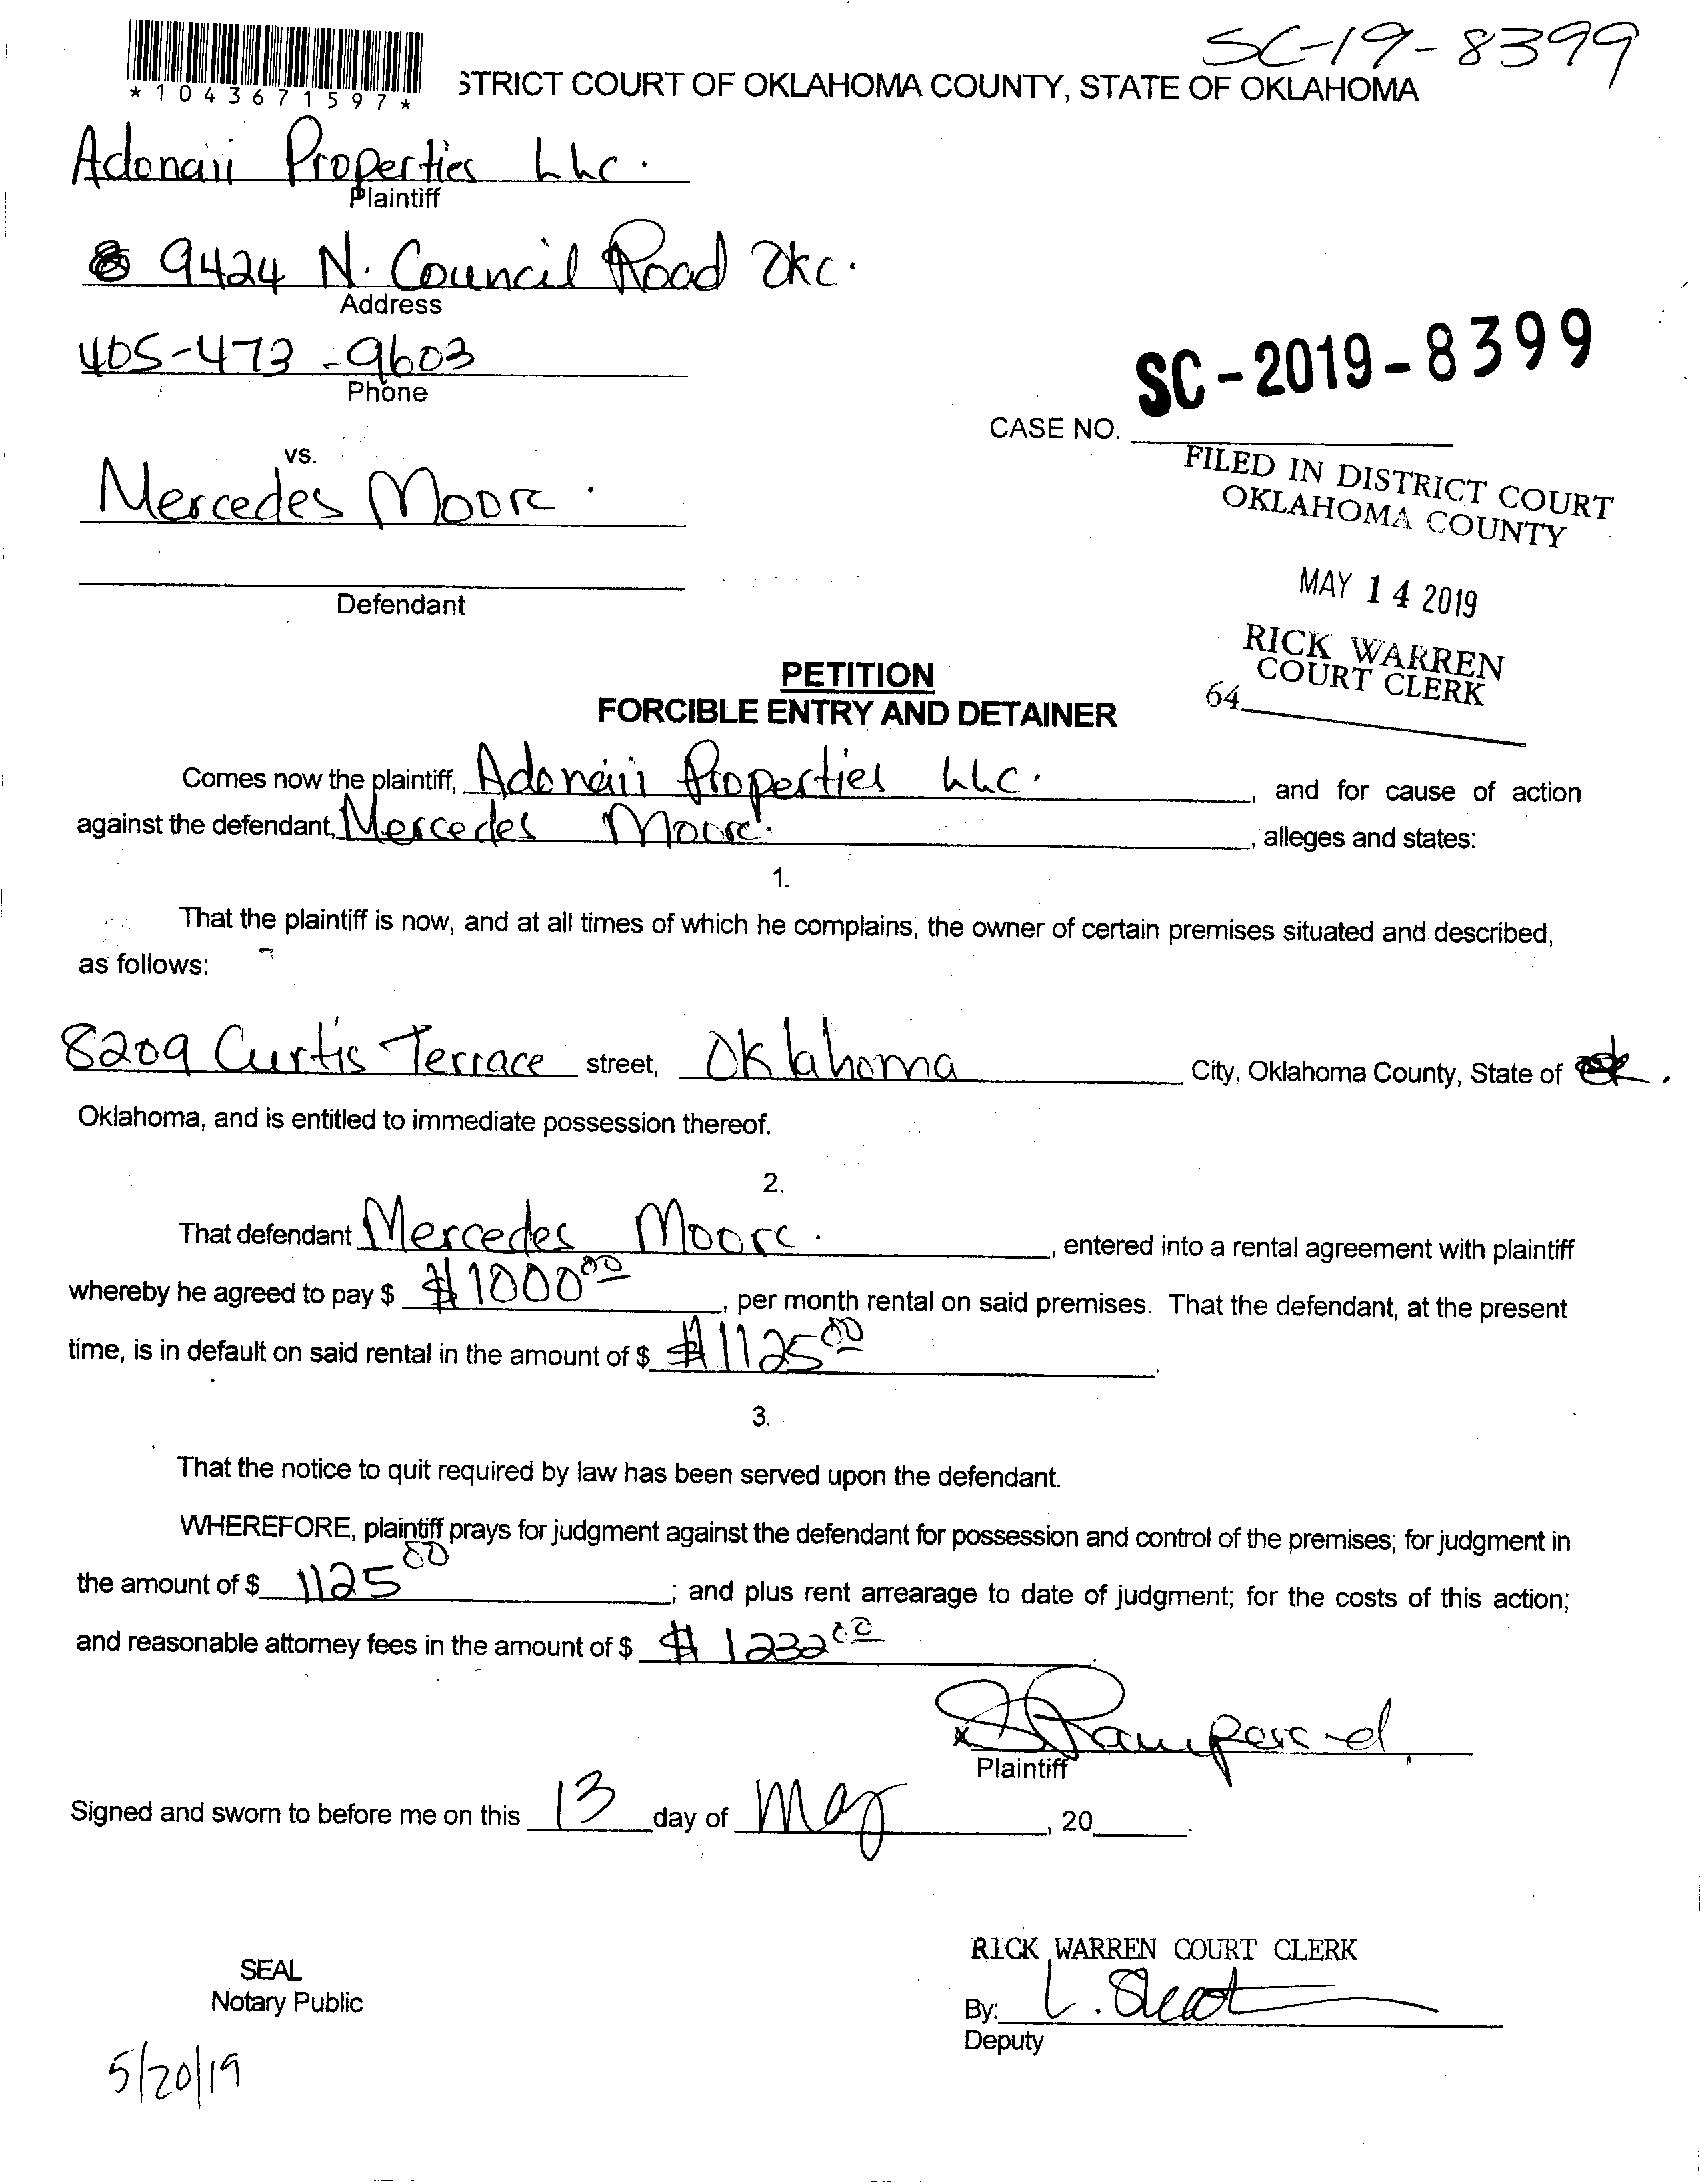 SC-19-8399
*1043671597*
STRICT COURT OF OKLAHOMA COUNTY, STATE OF OKLAHOMA
Adonaii Properties LLC.
Plaintiff
9424 N. Council Road OKC.
Address
405-473-9603
Phone
SC-2019-8399
CASE NO.
vs.
Mercedes Moore.
FILED IN DISTRICT COURT
OKLAHOMA COUNTY
MAY 14 2019
Defendant
RICK WARREN
COURT CLERK
64
PETITION
FORCIBLE ENTRY AND DETAINER
Comes now the plaintiff, Adonaii Properties LLC. , and for cause of action
against the defendant, Mercedes Moore. , alleges and states:
1.
That the plaintiff is now, and at all times of which he complains, the owner of certain premises situated and described,
as follows:
8209 Curtis Terrace street, Oklahoma City, Oklahoma County, State of OK.
Oklahoma, and is entitled to immediate possession thereof.
2.
That defendant Mercedes Moore. , entered into a rental agreement with plaintiff
whereby he agreed to pay $ $1000 00 , per month rental on said premises. That the defendant, at the present
time, is in default on said rental in the amount of $ $1125 00 .
3.
That the notice to quit required by law has been served upon the defendant.
WHEREFORE, plaintiff prays for judgment against the defendant for possession and control of the premises; for judgment in
the amount of $ 1125 00 ; and plus rent arrearage to date of judgment; for the costs of this action;
and reasonable attorney fees in the amount of $ $1232 00
x
Plaintiff
Signed and sworn to before me on this 13 day of May , 20 .
RICK WARREN COURT CLERK
SEAL
Notary Public
By:
Deputy
5/20/19